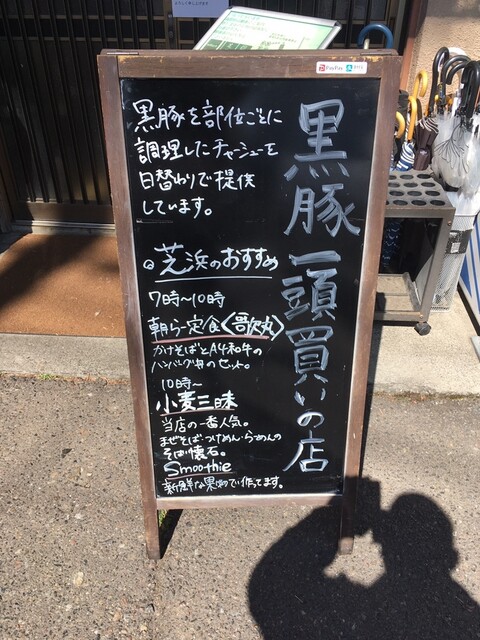 黒豚一頭買いの店
黒豚を部位ごとに
調理したチャーシューを
日替わりで提供
しています。
芝浜のおすすめ
7時〜10時
朝らー定食〈哥欠丸〉
かけそばとA4和牛の
ハンバーグ丼のセット。
10時〜
小麦三昧
当店の一番人気。
まぜそば・つけめん・らーめんの
そば懐石。
Smoothie
新鮮な果物で作ってます。
PayPay